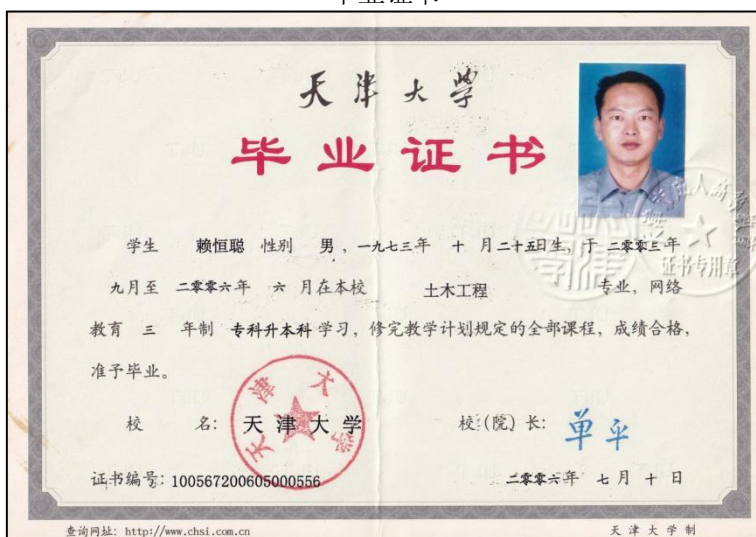 毕业证书
天津大学
毕业证书
学生 赖恒聪 性别 男，一九七三年 十 月二十五日生，于 二零零三年
九月至 二零零六年 六 月在本校 土木工程 专业，网络
教育 三 年制 专科升本科 学习，修完教学计划规定的全部课程，成绩合格，
准予毕业。
天津大学
证书专用章
校 名：天津大学 校（院）长：单平
证书编号：100567200605000556 二零零六年 七 月 十 日
查询网址：http://www.chsi.com.cn 天津大学制